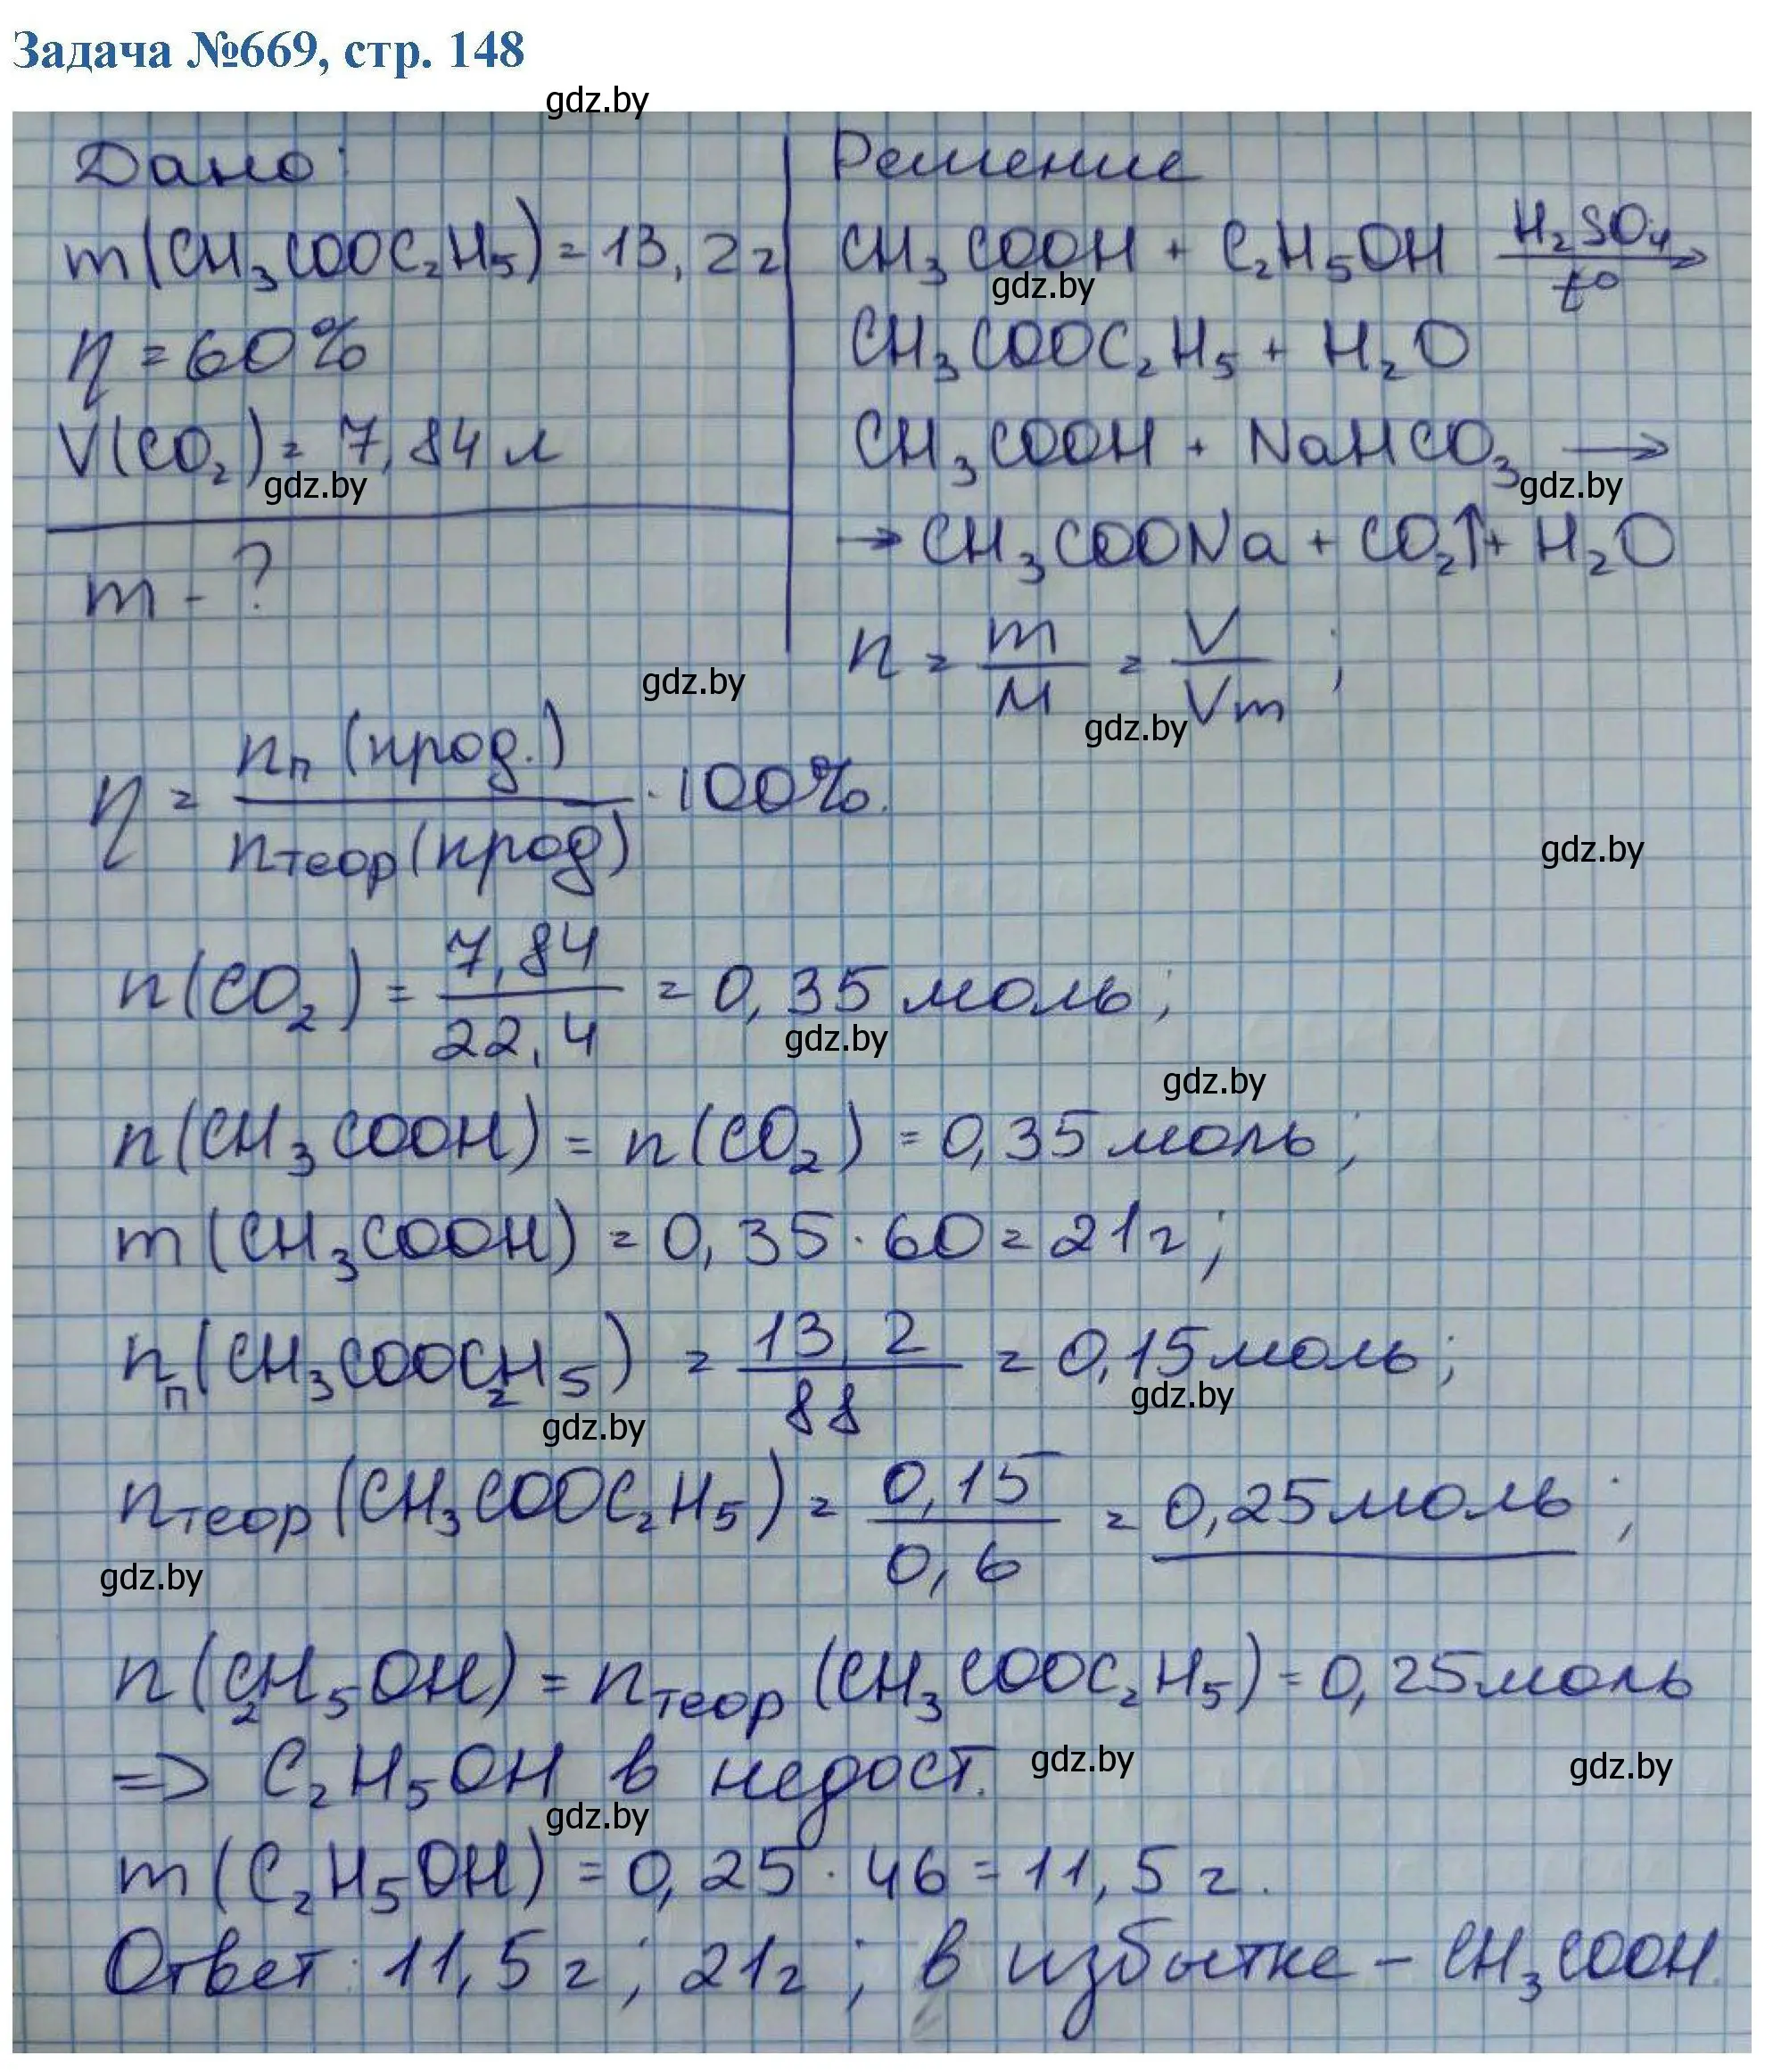 Задача №669, стр. 148
gdz.by
Дано:
m(CH₃COOC₂H₅) = 13,2 г
η = 60%
V(CO₂) = 7,84 л
gdz.by
m - ?
Решение
CH₃COOH + C₂H₅OH H₂SO₄ t° →
gdz.by
CH₃COOC₂H₅ + H₂O
CH₃COOH + NaHCO₃ →
gdz.by
→ CH₃COONa + CO₂↑ + H₂O
n = m/M = V/Vm ;
gdz.by
gdz.by
η = nп (прод.) / nтеор (прод) · 100%.
gdz.by
n(CO₂) = 7,84 / 22,4 = 0,35 моль;
gdz.by
gdz.by
n(CH₃COOH) = n(CO₂) = 0,35 моль;
m(CH₃COOH) = 0,35 · 60 = 21 г;
nп(CH₃COOC₂H₅) = 13,2 / 88 = 0,15 моль;
gdz.by
gdz.by
nтеор(CH₃COOC₂H₅) = 0,15 / 0,6 = 0,25 моль;
gdz.by
n(C₂H₅OH) = nтеор(CH₃COOC₂H₅) = 0,25 моль
=> C₂H₅OH в недост.
gdz.by
gdz.by
gdz.by
m(C₂H₅OH) = 0,25 · 46 = 11,5 г.
Ответ: 11,5 г; 21 г; в избытке – CH₃COOH.